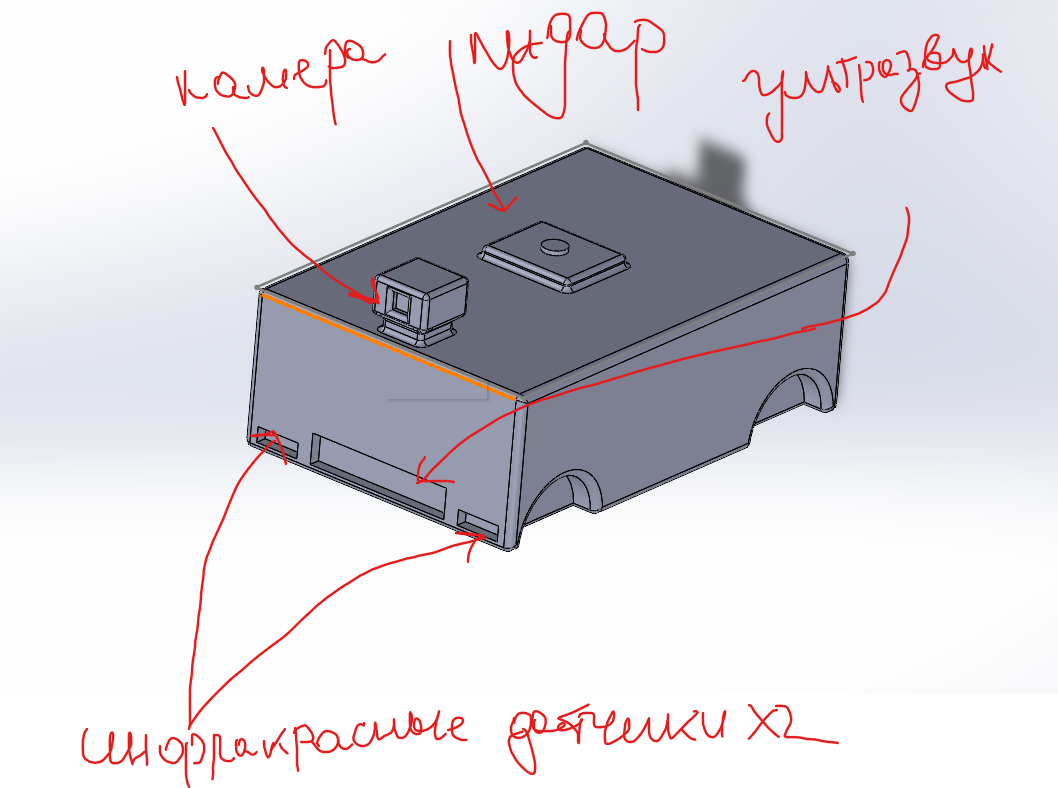 камера
лидар
ултразвук
инфракрасные датчики x2